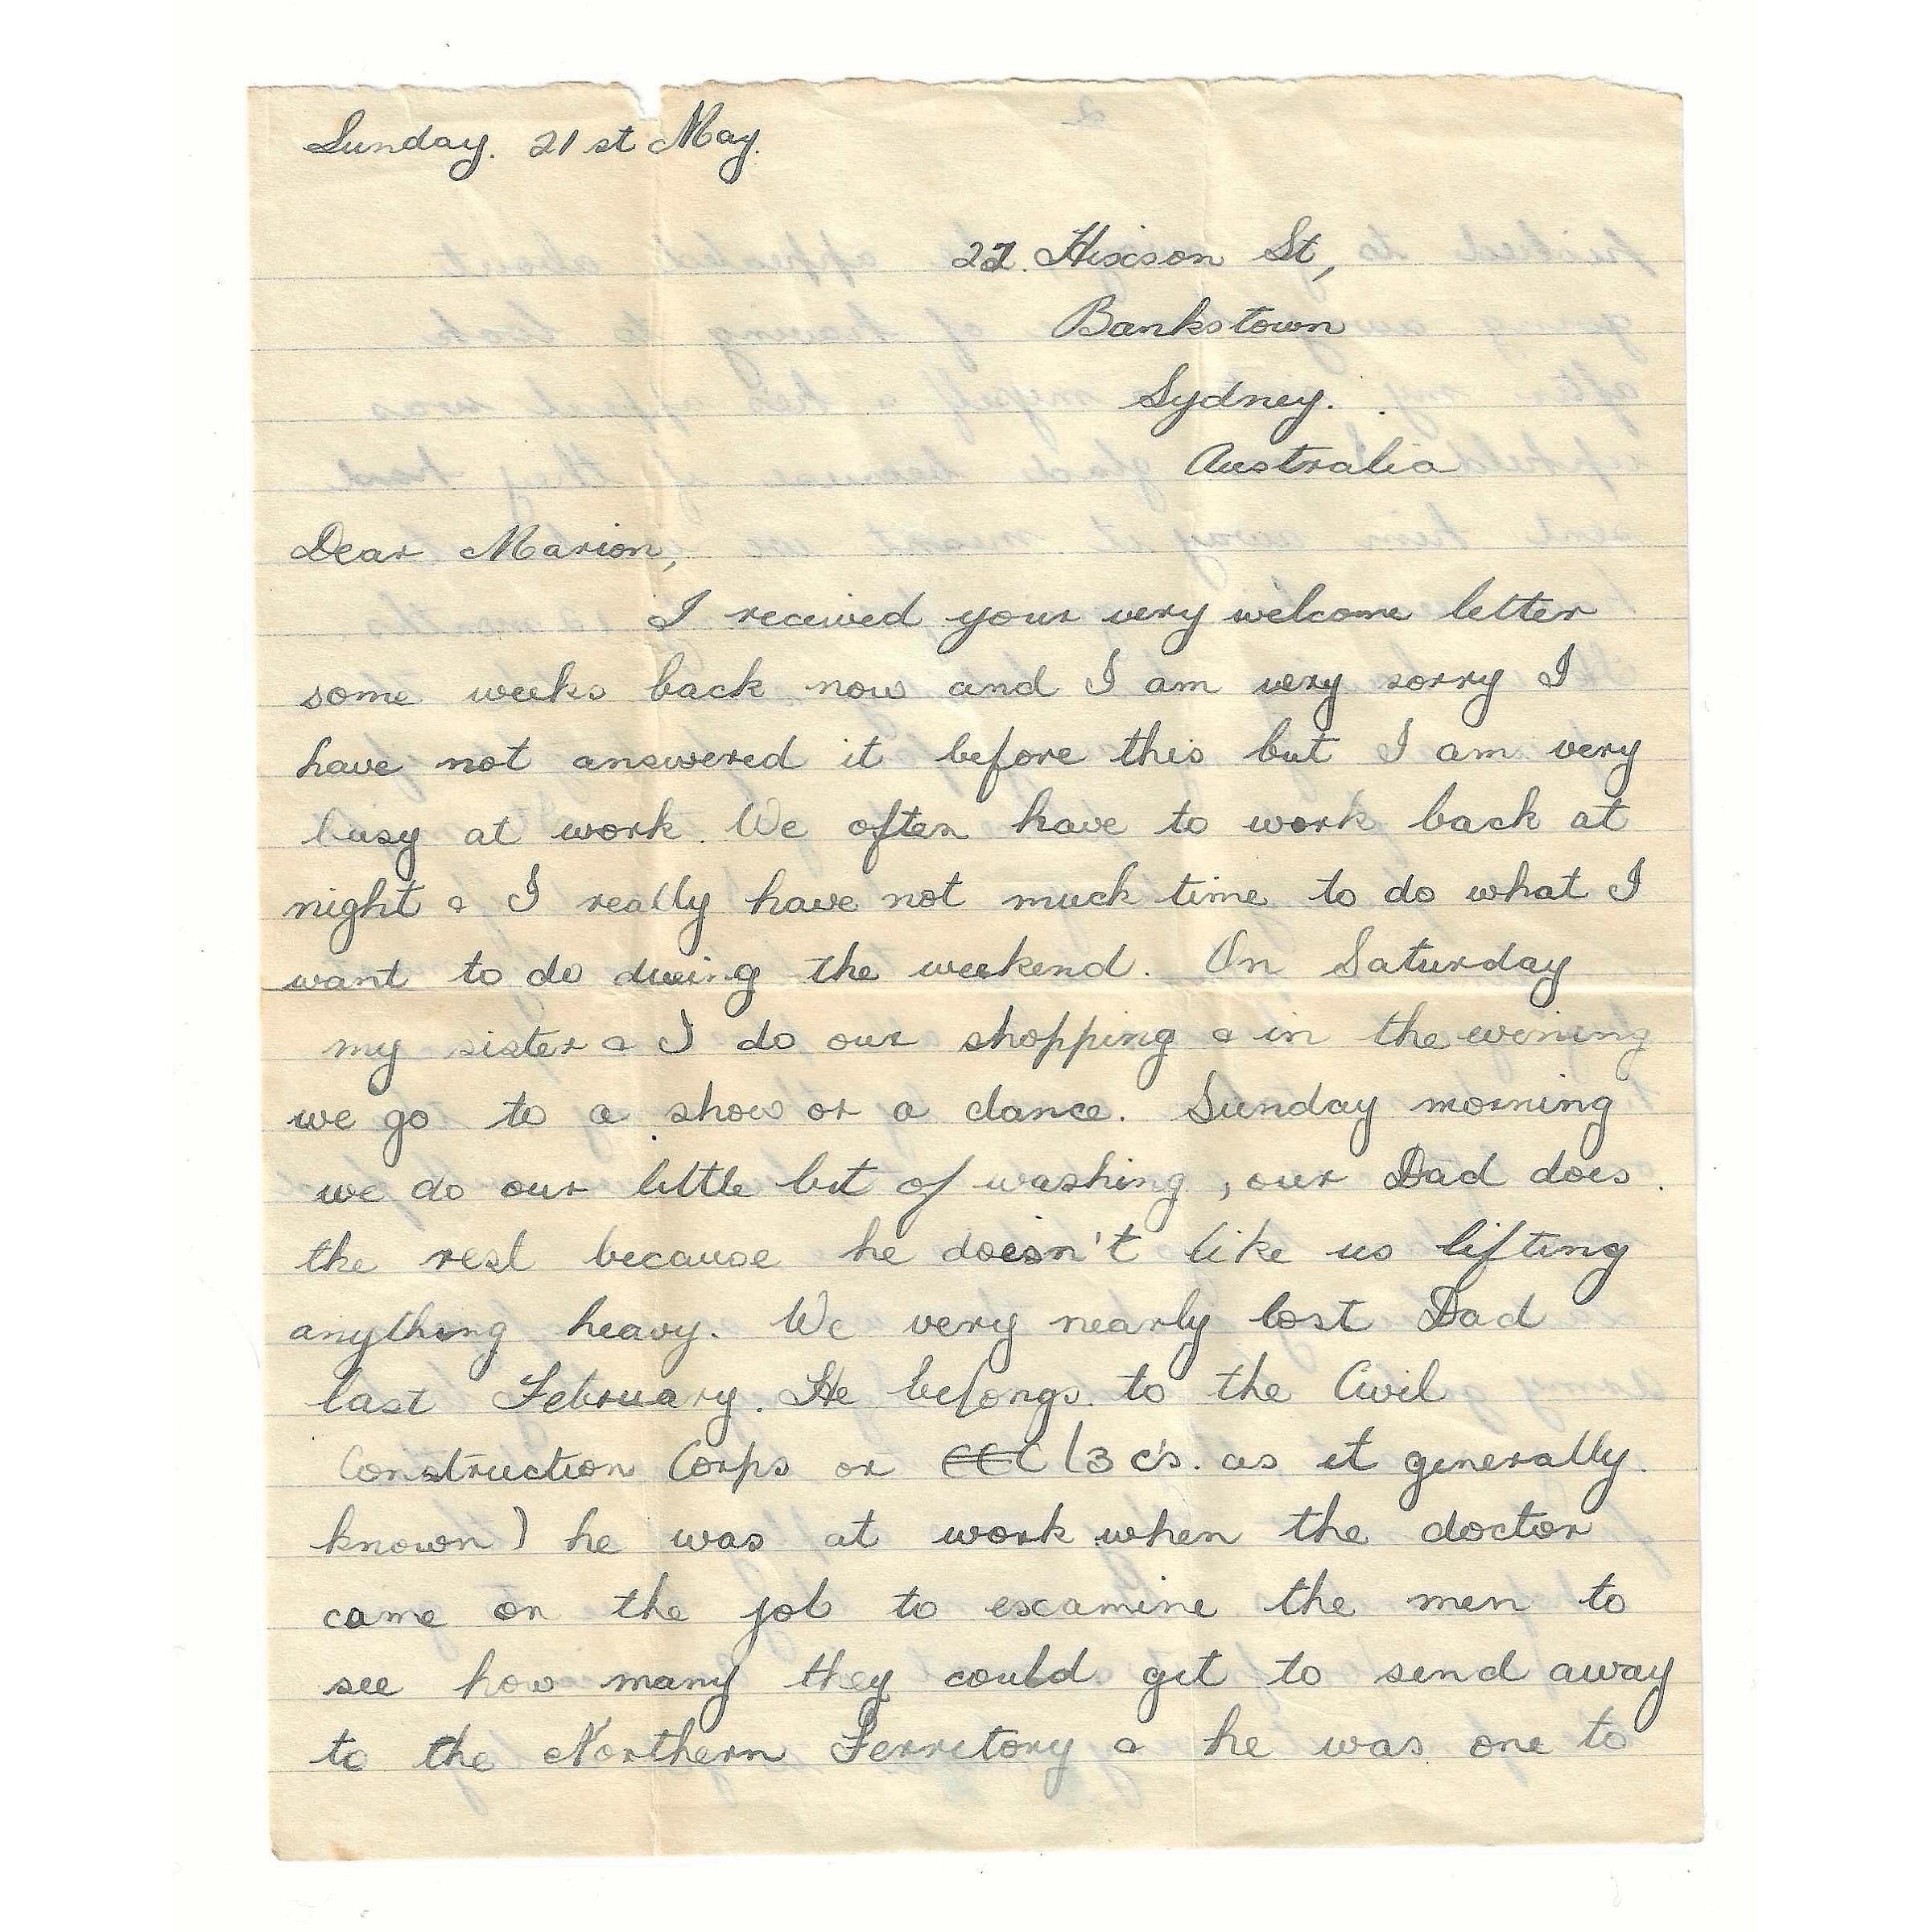 Sunday. 21st May.
22. Hixson St,
Bankstown
Sydney.
Australia
Dear Marion,
I received your very welcome letter
some weeks back now and I am very sorry I
have not answered it before this but I am very
busy at work. We often have to work back at
night & I really have not much time to do what I
want to do during the weekend. On Saturday
my sister & I do our shopping & in the evening
we go to a show or a dance. Sunday morning
we do our little bit of washing, our Dad does
the rest because he doesn't like us lifting
anything heavy. We very nearly lost Dad
last February. He belongs to the Civil
Construction Corps or CCC (3 c's. as it generally
known) he was at work when the doctor
came on the job to examine the men to
see how many they could get to send away
to the Northern Territory & he was one to